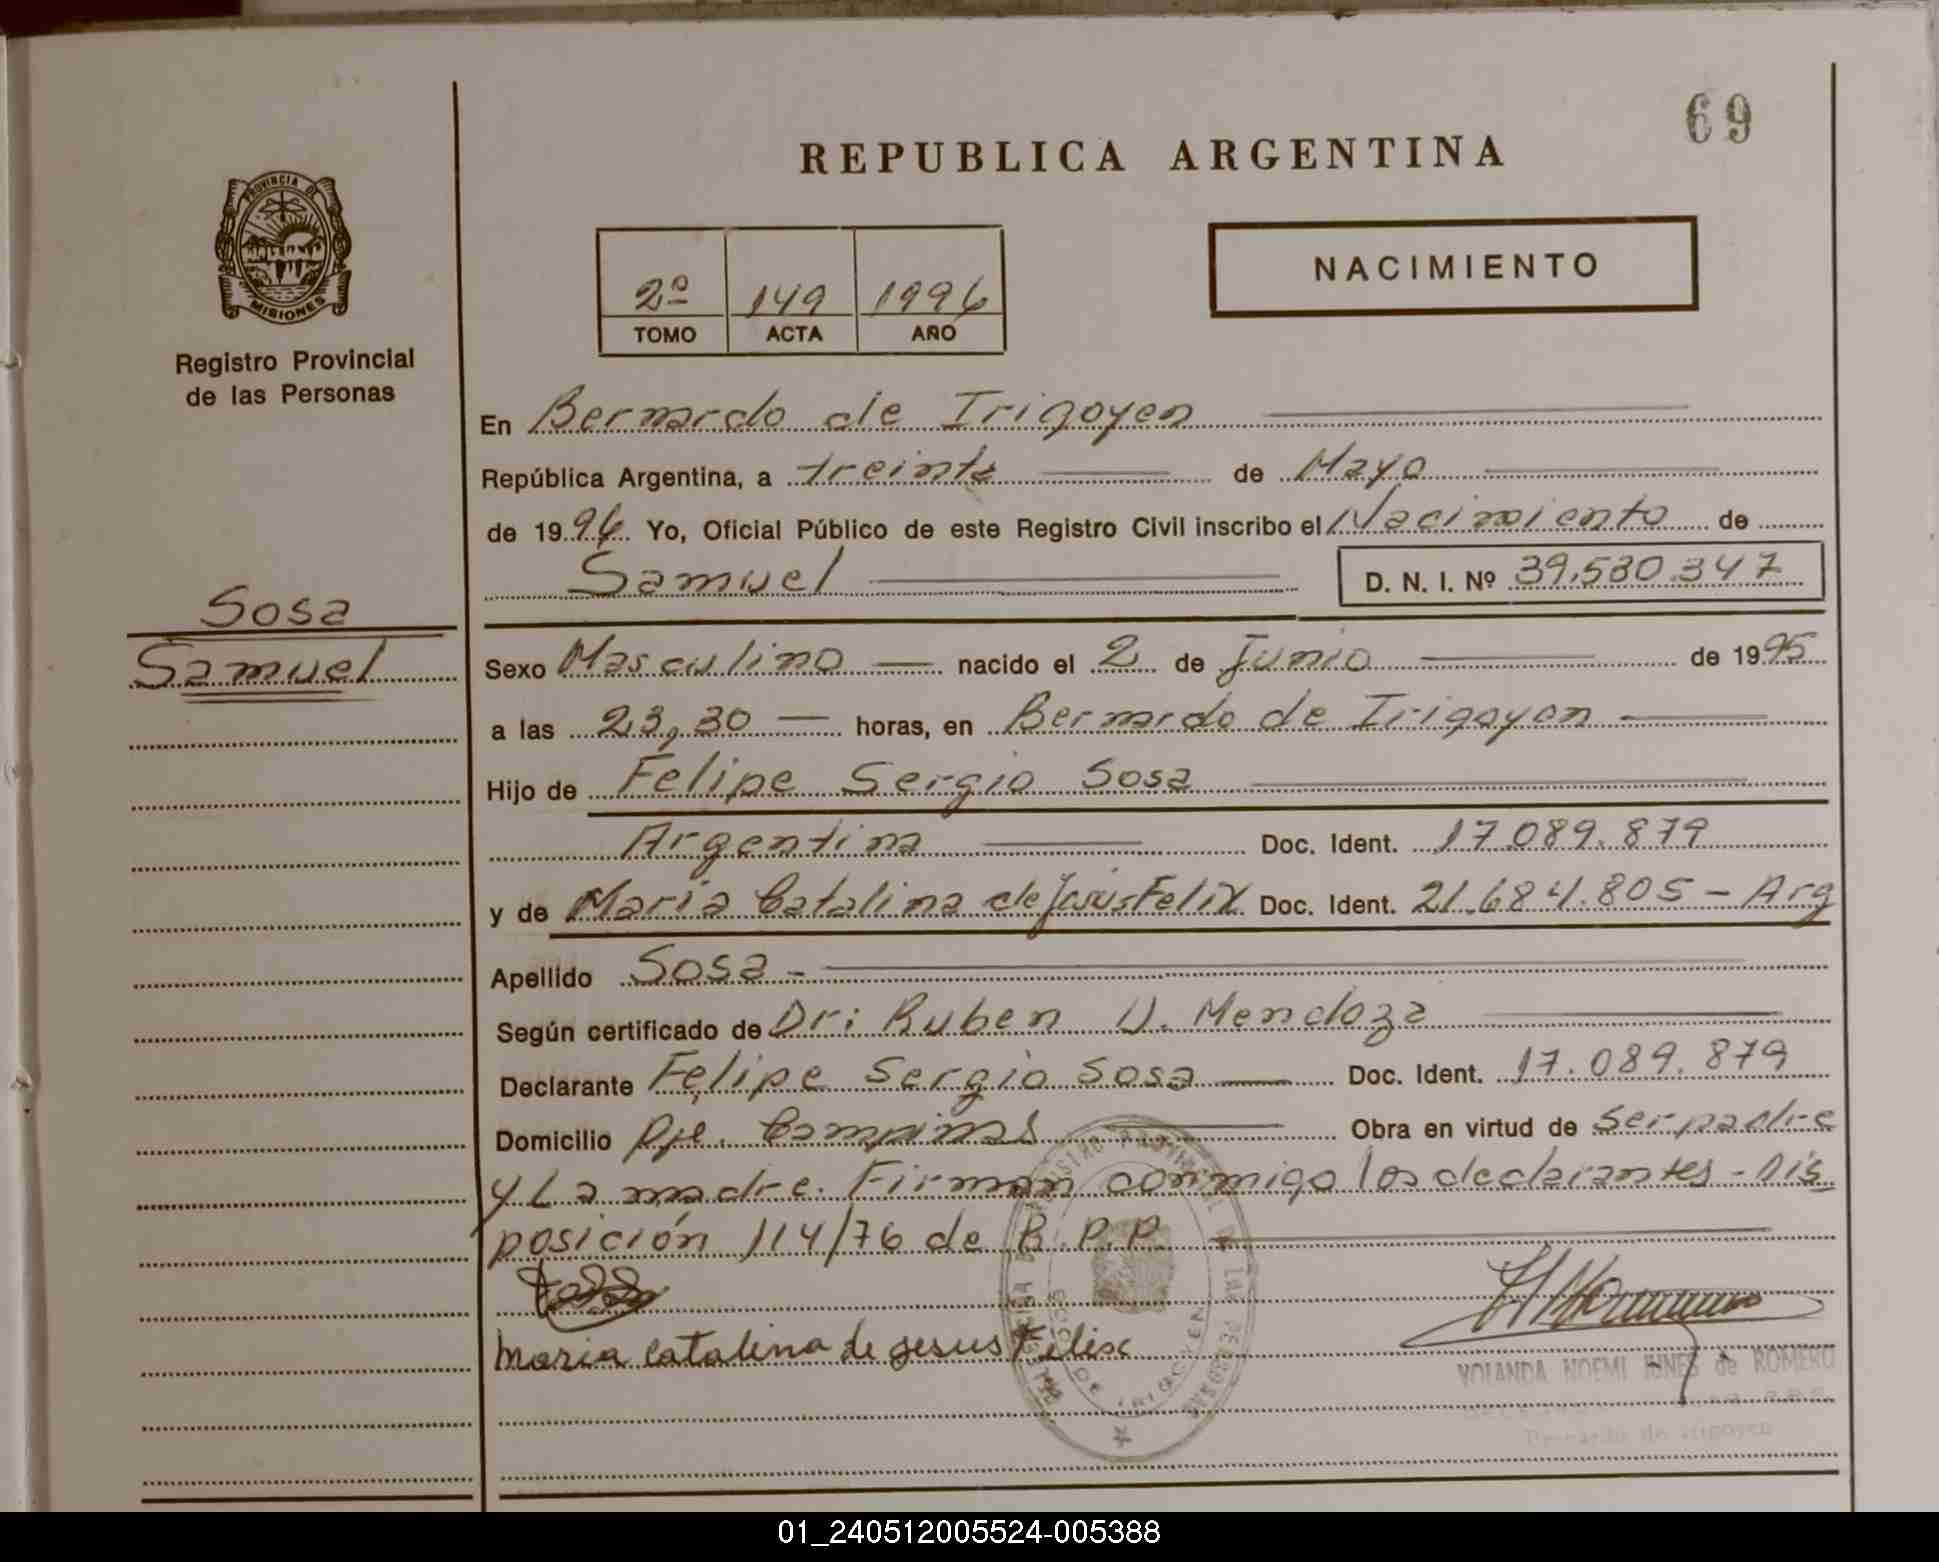 69
REPUBLICA ARGENTINA
PROVINCIA DE
MISIONES
Registro Provincial
de las Personas
NACIMIENTO
2º 149 1996
TOMO ACTA AÑO
En Bernardo de Irigoyen
República Argentina, a treinta de Mayo
de 1996 Yo, Oficial Público de este Registro Civil inscribo el Nacimiento de
Samuel D. N. I. Nº 39.530.347
Sosa
Samuel
Sexo Masculino nacido el 2 de Junio de 1995
a las 23,30 horas, en Bernardo de Irigoyen
Hijo de Felipe Sergio Sosa
Argentina Doc. Ident. 17.089.879
y de Maria Catalina de Jesús Felix Doc. Ident. 21.684.805 - Arg
Apellido Sosa -
Según certificado de Dr: Ruben U. Mendoza
Declarante Felipe Sergio Sosa Doc. Ident. 17.089.879
Domicilio Pje. Campinas Obra en virtud de ser padre
y La madre. Firman conmigo los declarantes - Dis
posición 114/76 de R.P.P.
maria catalina de jesus Felix
DE IRIGOYEN
YOLANDA NOEMI de ROMERO
Bernardo de Irigoyen
01_240512005524-005388